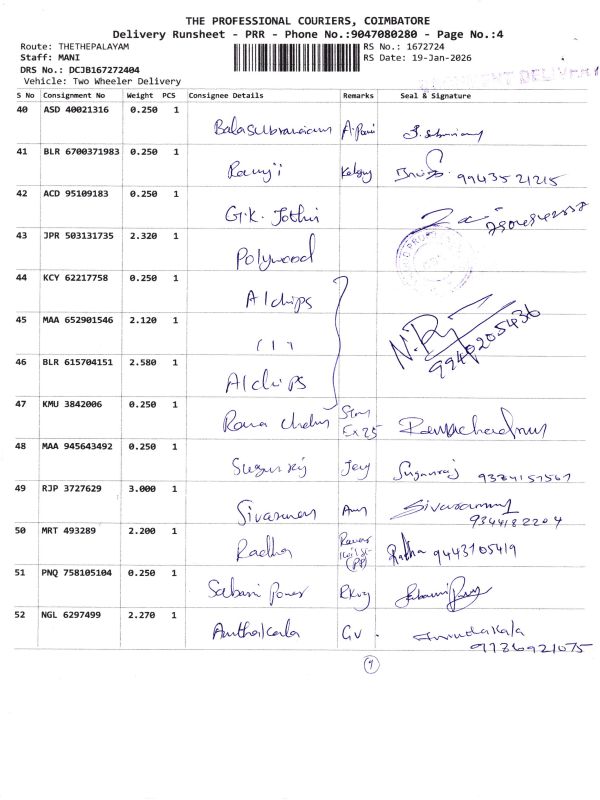 THE PROFESSIONAL COURIERS, COIMBATORE
Delivery Runsheet - PRR - Phone No.:9047080280 - Page No.:4
Route: THETHEPALAYAM RS No.: 1672724
Staff: MANI RS Date: 19-Jan-2026
DRS No.: DCJB167272404
Vehicle: Two Wheeler Delivery
S No Consignment No Weight PCS Consignee Details Remarks Seal & Signature
40 ASD 40021316 0.250 1
Balasubramaniam
41 BLR 6700371983 0.250 1
Ramji 9943521215
42 ACD 95109183 0.250 1
G.K. Jothi
43 JPR 503131735 2.320 1
Polywood
44 KCY 62217758 0.250 1
Alchips
45 MAA 652901546 2.120 1
9940205436
46 BLR 615704151 2.580 1
Alchips
47 KMU 3842006 0.250 1
Rama Ex 25 Ramachandran
48 MAA 945643492 0.250 1
Suganraj Jay Suganraj 9384151567
49 RJP 3727629 3.000 1
Sivasamy Sivasamy
9344182204
50 MRT 493289 2.200 1
Radha (PP) Radha 9443105419
51 PNQ 758105104 0.250 1
Sabari Power
52 NGL 6297499 2.270 1
GV Amudakala
9786921075
9